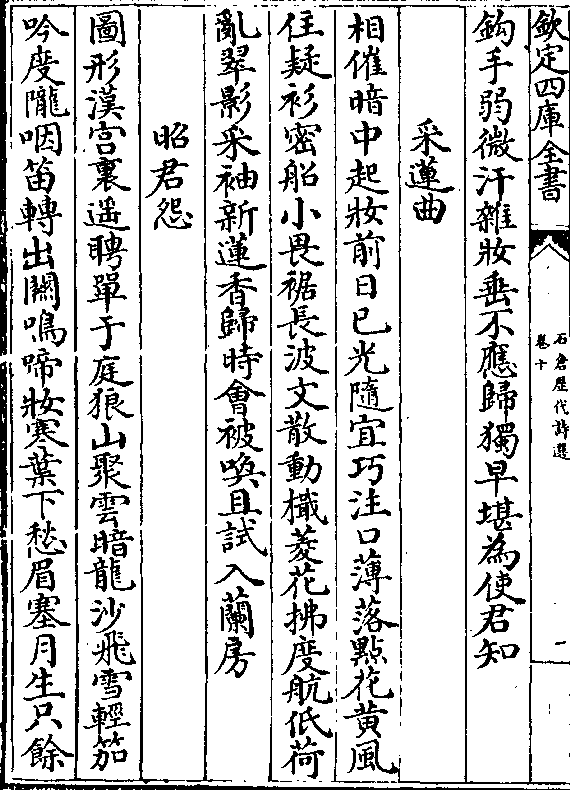 欽定四庫全書
石倉歷代詩選
卷十
一
鈎手弱微汗雜妝垂不應歸獨早堪為使君知
采蓮曲
相催暗中起妝前日已光隨宜巧注口薄落點花黄風
住疑衫密船小畏裾長波文散動檝菱花拂度航低荷
亂翠影采袖新蓮香歸時會被喚且試入蘭房
昭君怨
圖形漢宫裏遥聘單于庭狼山聚雲暗龍沙飛雪輕笳
吟度隴咽笛轉出關鳴啼妝寒葉下愁眉塞月生只餘